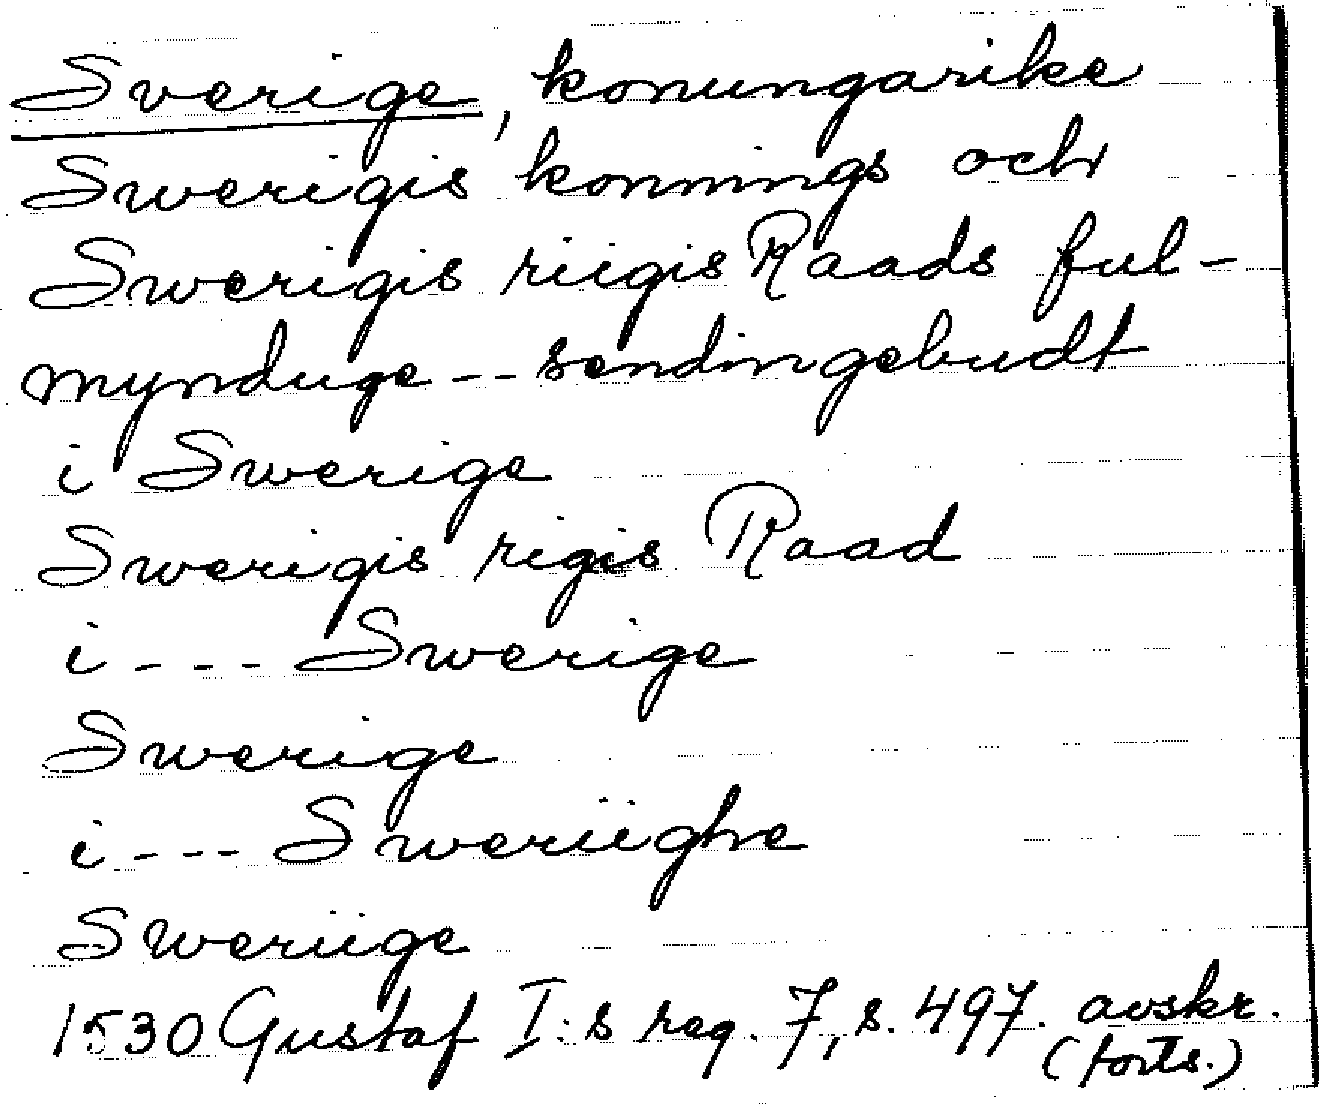 Sverige, konungarike
Swerigis konnings och
Swerigis riigis Raads ful-
mynduge -- sendingebudt
i Swerige
Swerigis rigis Raad
i --- Swerige
Swerige
i --- Sweriighe
Sweriige
1530 Gustaf I:s reg. 7, s. 497. avskr.
(forts.)